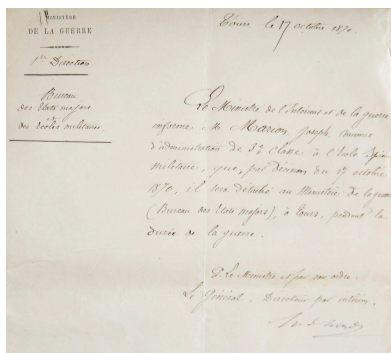 MINISTÈRE
DE LA GUERRE
1re Direction
Bureau
des Etats majors
et des
Ecoles militaires
Tours, le 17 octobre 1870.
Le Ministre de l'Intérieur et de la guerre
informe Mr Marion Joseph, commis
d'administration de 3e classe à l'Ecole
militaire, que, par décision du 17 octobre
1870, il sera détaché au Ministère de la guerre
(Bureau des Etats majors), à Tours, pendant la
durée de la guerre.
P. Le Ministre et par son ordre
Le Général, Directeur par intérim,